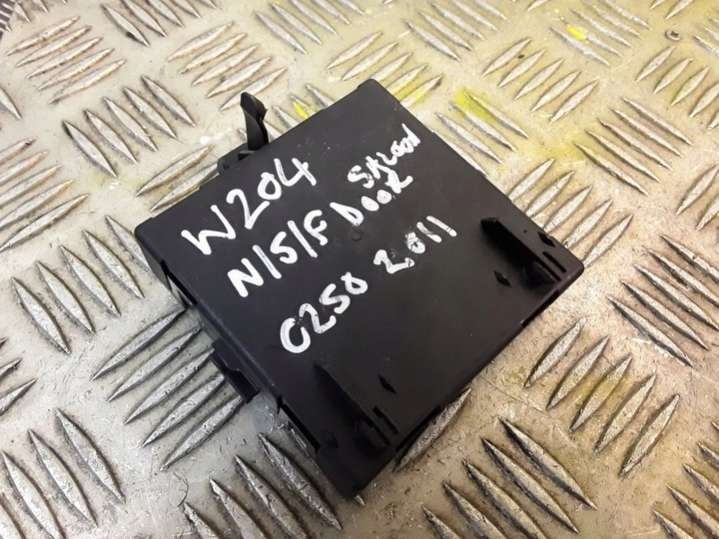 W204
SALOON
N/S/F DOOR
C250 2011